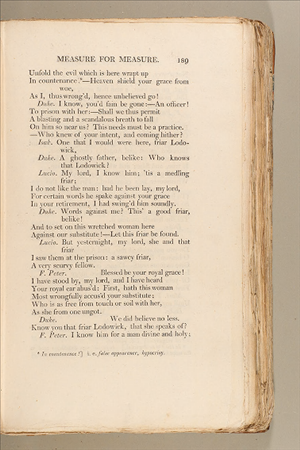 MEASURE FOR MEASURE. 189
Unfold the evil which is here wrapt up
In countenance!⁸—Heaven shield your grace from
woe,
As I, thus wrong'd, hence unbelieved go!
Duke. I know, you'd fain be gone:—An officer!
To prison with her:—Shall we thus permit
A blasting and a scandalous breath to fall
On him so near us? This needs must be a practice.
—Who knew of your intent, and coming hither?
Isab. One that I would were here, friar Lodo-
wick.
Duke. A ghostly father, belike: Who knows
that Lodowick?
Lucio. My lord, I know him; 'tis a medling
friar;
I do not like the man: had he been lay, my lord,
For certain words he spake against your grace
In your retirement, I had swing'd him soundly.
Duke. Words against me? This' a good friar,
belike!
And to set on this wretched woman here
Against our substitute!—Let this friar be found.
Lucio. But yesternight, my lord, she and that
friar
I saw them at the prison: a sawcy friar,
A very scurvy fellow.
F. Peter. Blessed be your royal grace!
I have stood by, my lord, and I have heard
Your royal ear abus'd: First, hath this woman
Most wrongfully accus'd your substitute;
Who is as free from touch or soil with her,
As she from one ungot.
Duke. We did believe no less.
Know you that friar Lodowick, that she speaks of?
F. Peter. I know him for a man divine and holy;
⁸ In countenance!] i. e. false appearance, hypocrisy.